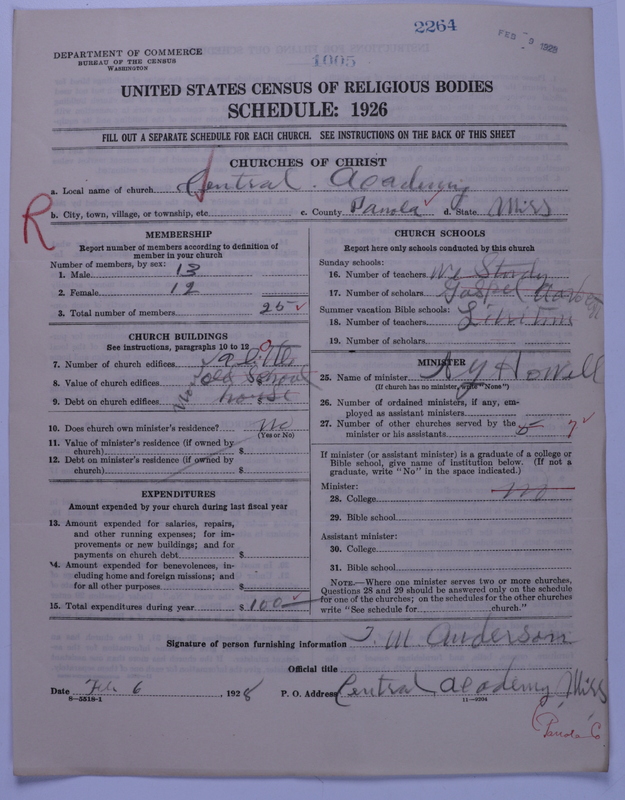 2264
FEB 9 1928
1005
DEPARTMENT OF COMMERCE
BUREAU OF THE CENSUS
WASHINGTON
UNITED STATES CENSUS OF RELIGIOUS BODIES
SCHEDULE: 1926
FILL OUT A SEPARATE SCHEDULE FOR EACH CHURCH. SEE INSTRUCTIONS ON THE BACK OF THIS SHEET
CHURCHES OF CHRIST
a. Local name of church Central Academy
R
b. City, town, village, or township, etc. c. County Panola d. State Miss
MEMBERSHIP
Report number of members according to definition of
member in your church
Number of members, by sex:
1. Male 13
2. Female 12
3. Total number of members 25
CHURCH BUILDINGS
See instructions, paragraphs 10 to 12
7. Number of church edifices
8. Value of church edifices old School $
9. Debt on church edifices house $
10. Does church own minister's residence? No
(Yes or No)
11. Value of minister's residence (if owned by
church) $
12. Debt on minister's residence (if owned by
church) $
EXPENDITURES
Amount expended by your church during last fiscal year
13. Amount expended for salaries, repairs,
and other running expenses; for im-
provements or new buildings; and for
payments on church debt $
14. Amount expended for benevolences, in-
cluding home and foreign missions; and
for all other purposes $
15. Total expenditures during year $ 100
CHURCH SCHOOLS
Report here only schools conducted by this church
Sunday schools:
16. Number of teachers We Study
17. Number of scholars Gospel
Summer vacation Bible schools:
18. Number of teachers
19. Number of scholars
MINISTER
25. Name of minister Howell
(If church has no minister, write "None")
26. Number of ordained ministers, if any, em-
ployed as assistant ministers
27. Number of other churches served by the
minister or his assistants 7
If minister (or assistant minister) is a graduate of a college or
Bible school, give name of institution below. (If not a
graduate, write "No" in the space indicated.)
Minister:
28. College no
29. Bible school
Assistant minister:
30. College
31. Bible school
NOTE.—Where one minister serves two or more churches,
Questions 28 and 29 should be answered only on the schedule
for one of the churches; on the schedules for the other churches
write "See schedule for church."
Signature of person furnishing information T. M. Anderson
Official title
Date Feb 6, 1928 P. O. Address Central Academy Miss
8—5518-1 11—9204
Panola Co